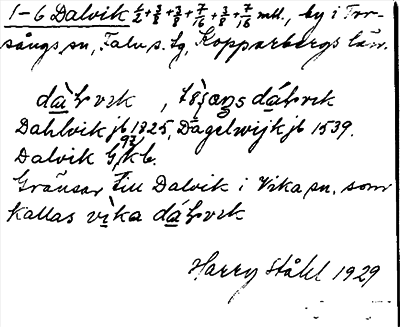 1-6 Dalvik 1/2+3/8+3/8+7/16+3/8+7/16 mtl., by i Tor-
sångs sn, Falu s. tg, Kopparbergs län.
Dahlvik jb 1825, Dagelwijk jb 1539.
Dalvik GV kb.
Gränsar till Dalvik i Vika sn. som
kallas vika
Harry Ståhl 1929